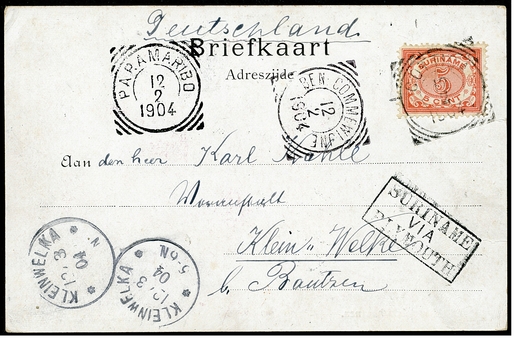 Deutschland
Briefkaart
Adreszijde
PARAMARIBO
12
2
1904
BEN: COMMEWIJNE
12
2
1904
SURINAME
5
5 CENT
Aan den heer Karl
Klein Welke
b. Bautzen
SURINAME
VIA
PLYMOUTH
KLEINWELKA
12.3
04
N
KLEINWELKA
12.3
04
5-6N